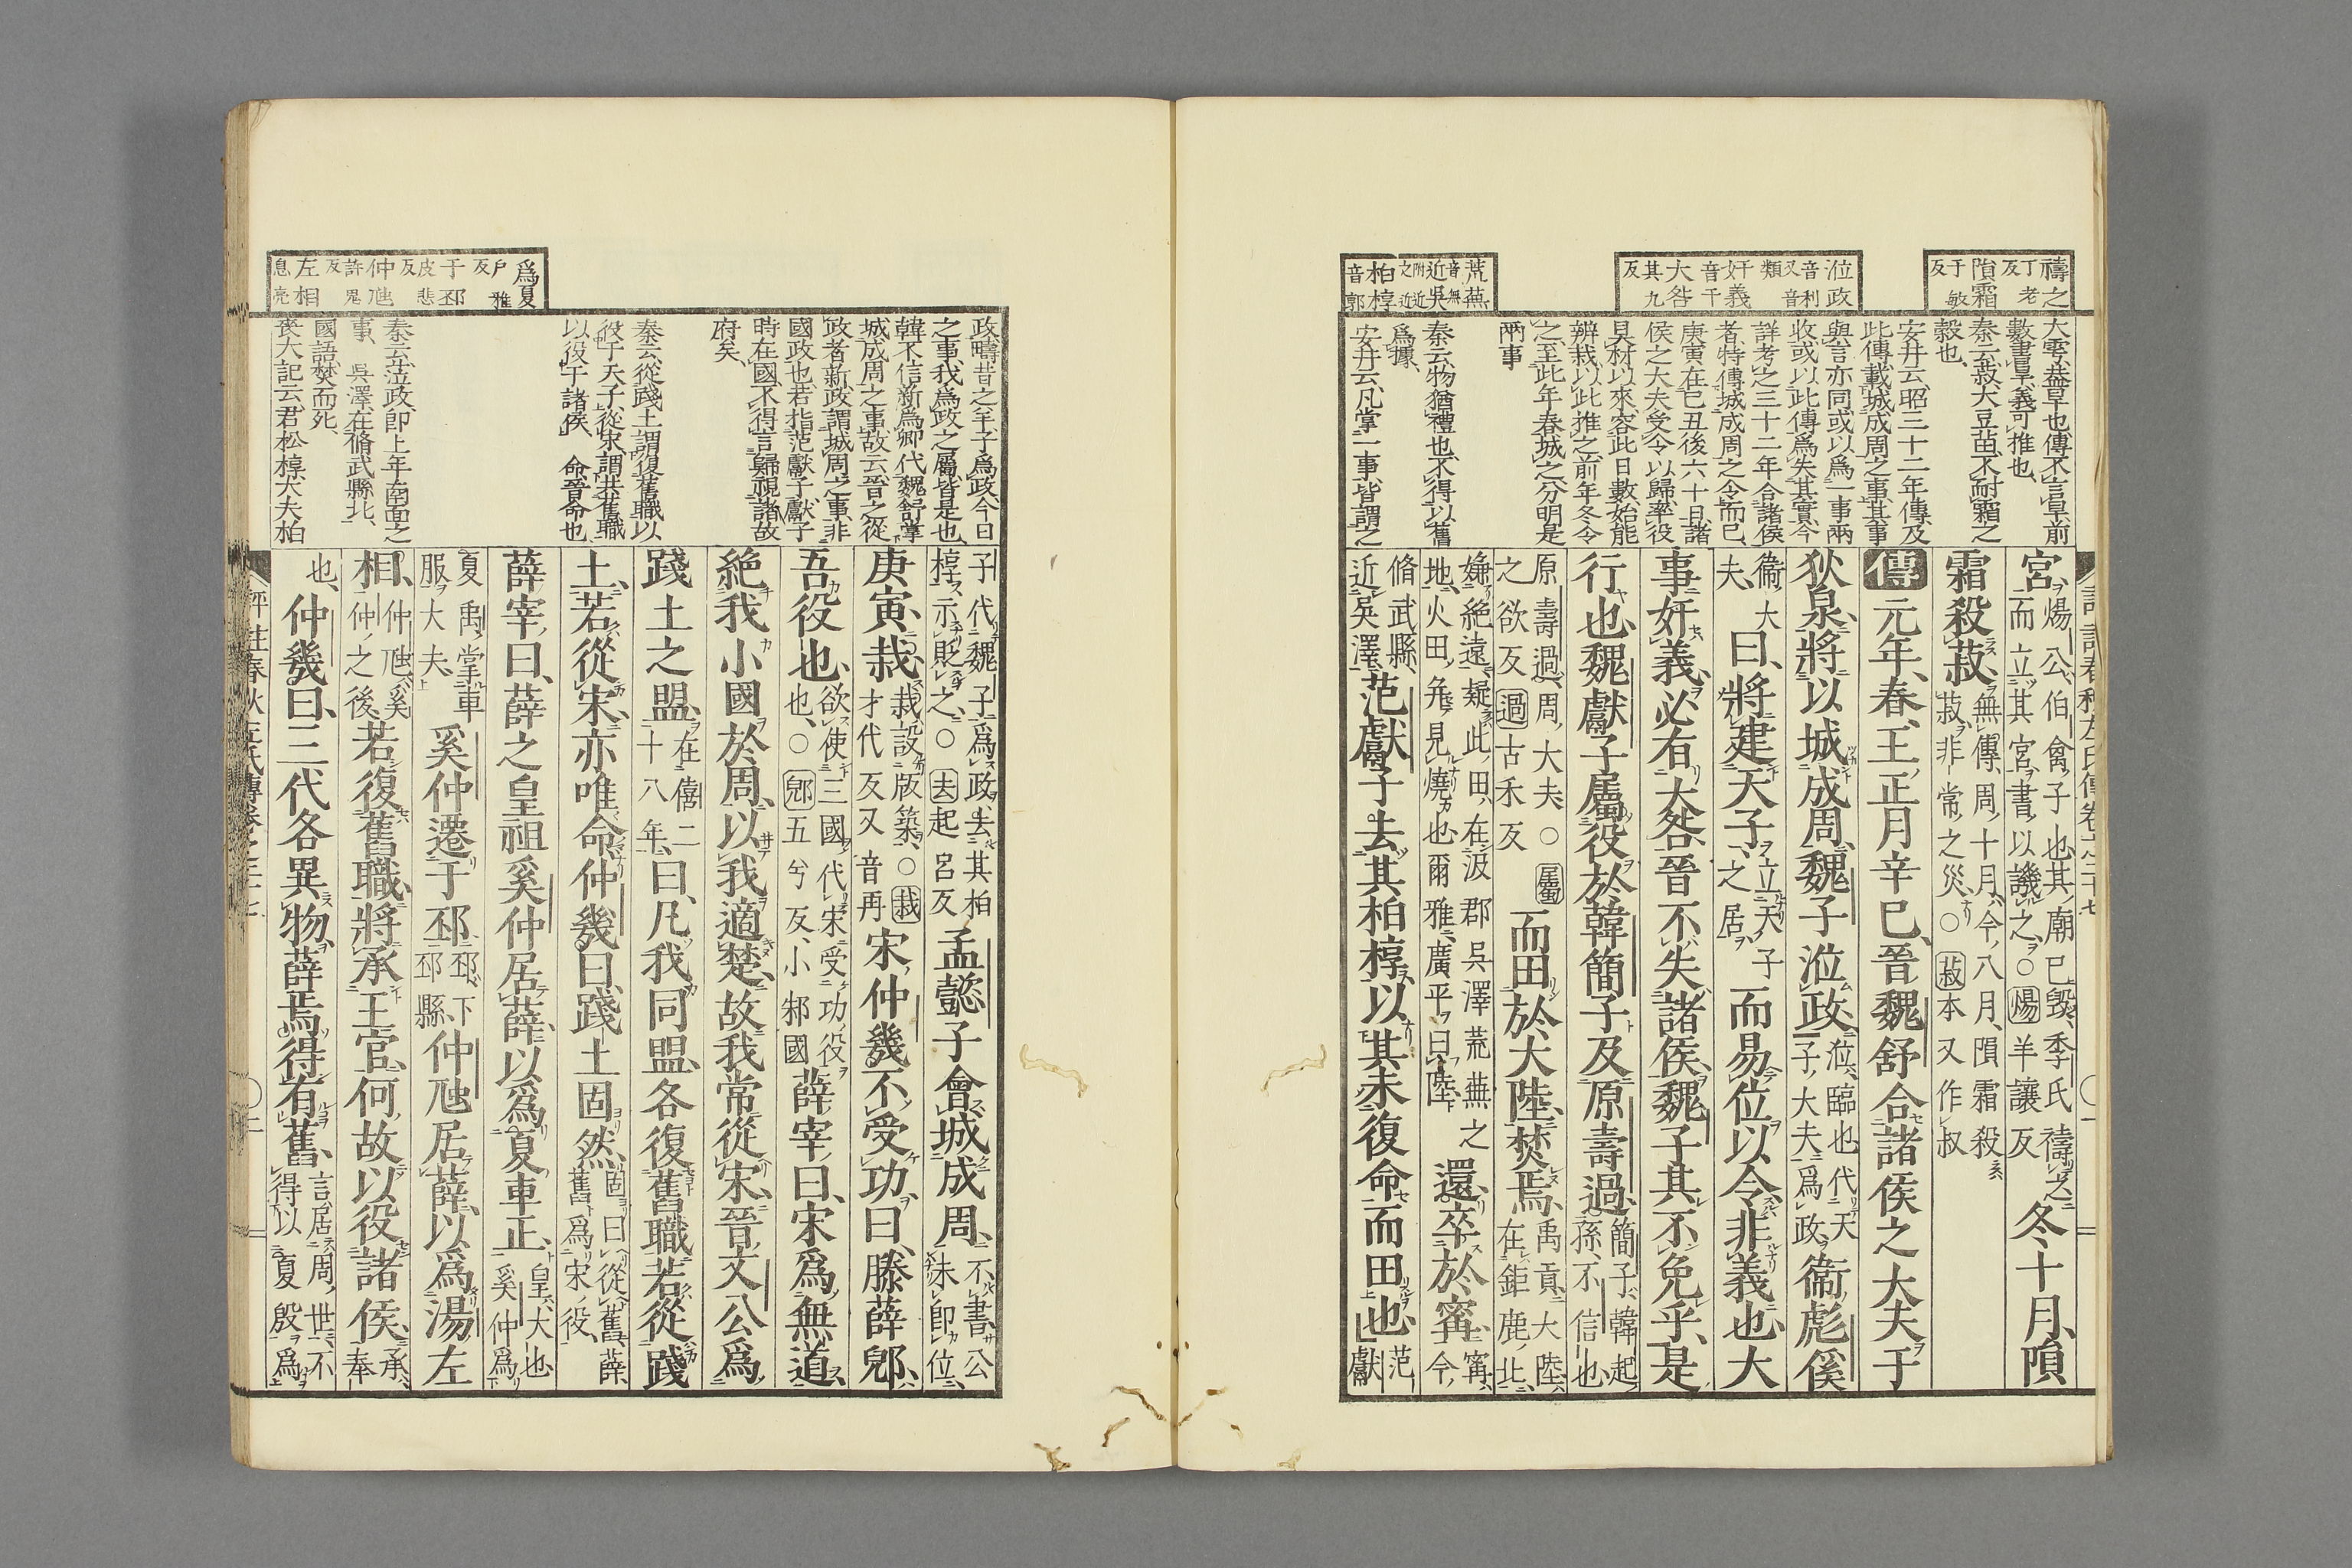 禱之丁老反
隕霜于敏反
涖政音利又音類
奸義音干
大咎其九反
荒蕪音無
近吳附近之近
柏椁音郭
大雩蓋旱也傳不言旱前
數書旱義可推也
秦云菽大豆苗不耐霜之
穀也
安井云昭三十二年傳及
此傳載城成周之事其事
與言亦同或以爲一事兩
收或以此傳爲失其實今
詳考之三十二年合諸侯
者特傳城成周之令而已
庚寅在己丑後六十日諸
侯之大夫受令以歸率役
具材以來容此日數始能
辨栽以此推之前年冬令
之至此年春城之分明是
兩事
秦云物猶禮也不得以舊
爲據
安井云凡掌一事皆謂之
宮煬公伯禽子也其廟已毀季氏禱之而立其宮書以譏之○煬羊讓反冬十月隕
霜殺菽無傳周十月今八月隕霜殺菽非常之災○菽本又作叔
傳元年春王正月辛巳晉魏舒合諸侯之大夫于
狄泉將以城成周魏子涖政涖臨也代天子大夫爲政衞彪傒
衞大夫曰將建天子立天子之居而易位以令非義也大
事奸義必有大咎晉不失諸侯魏子其不免乎是
行也魏獻子屬役於韓簡子及原壽過簡子韓起孫不信也
原壽過周大夫○屬之欲反過古禾反而田於大陸焚焉禹貢大陸在鉅鹿北
嫌絕遠疑此田在汲郡吳澤荒蕪之地火田幷見燒也爾雅廣平曰陸還卒於甯甯今
脩武縣近吳澤范獻子去其柏椁以其未復命而田也范獻
爲夏戶雅反
于邳皮悲反
仲虺許鬼反
左相息亮
政疇昔之羊子爲政今日
之事我爲政之屬皆是也
韓不信新爲卿代魏舒掌
城成周之事故云晉之從
政者新政謂城周之事非
國政也若指范獻子獻子
時在國不得言歸視諸故
府矣
秦云從踐土謂復舊職以
役于天子從宋謂共舊職
以役于諸侯 命晉命也
秦云涖政即上年南面之
事 吳澤在脩武縣北
國語焚而死
喪大記云君松椁大夫柏
子代魏子爲政去其柏椁示貶之○去起呂反孟懿子會城成周不書公未即位
庚寅栽栽設版築○栽才代反又音再宋仲幾不受功曰滕薛郳
吾役也欲使三國代宋受功役也○郳五兮反小邾國薛宰曰宋爲無道
絕我小國於周以我適楚故我常從宋晉文公爲
踐土之盟在僖二十八年曰凡我同盟各復舊職若從踐
土若從宋亦唯命仲幾曰踐土固然固曰從舊薛舊爲宋役
薛宰曰薛之皇祖奚仲居薛以爲夏車正皇大也奚仲爲
夏禹掌車服大夫奚仲遷于邳邳下邳縣仲虺居薛以爲湯左
相仲虺奚仲之後若復舊職將承王官何故以役諸侯承奉
也仲幾曰三代各異物薛焉得有舊言居周世不得以夏殷爲